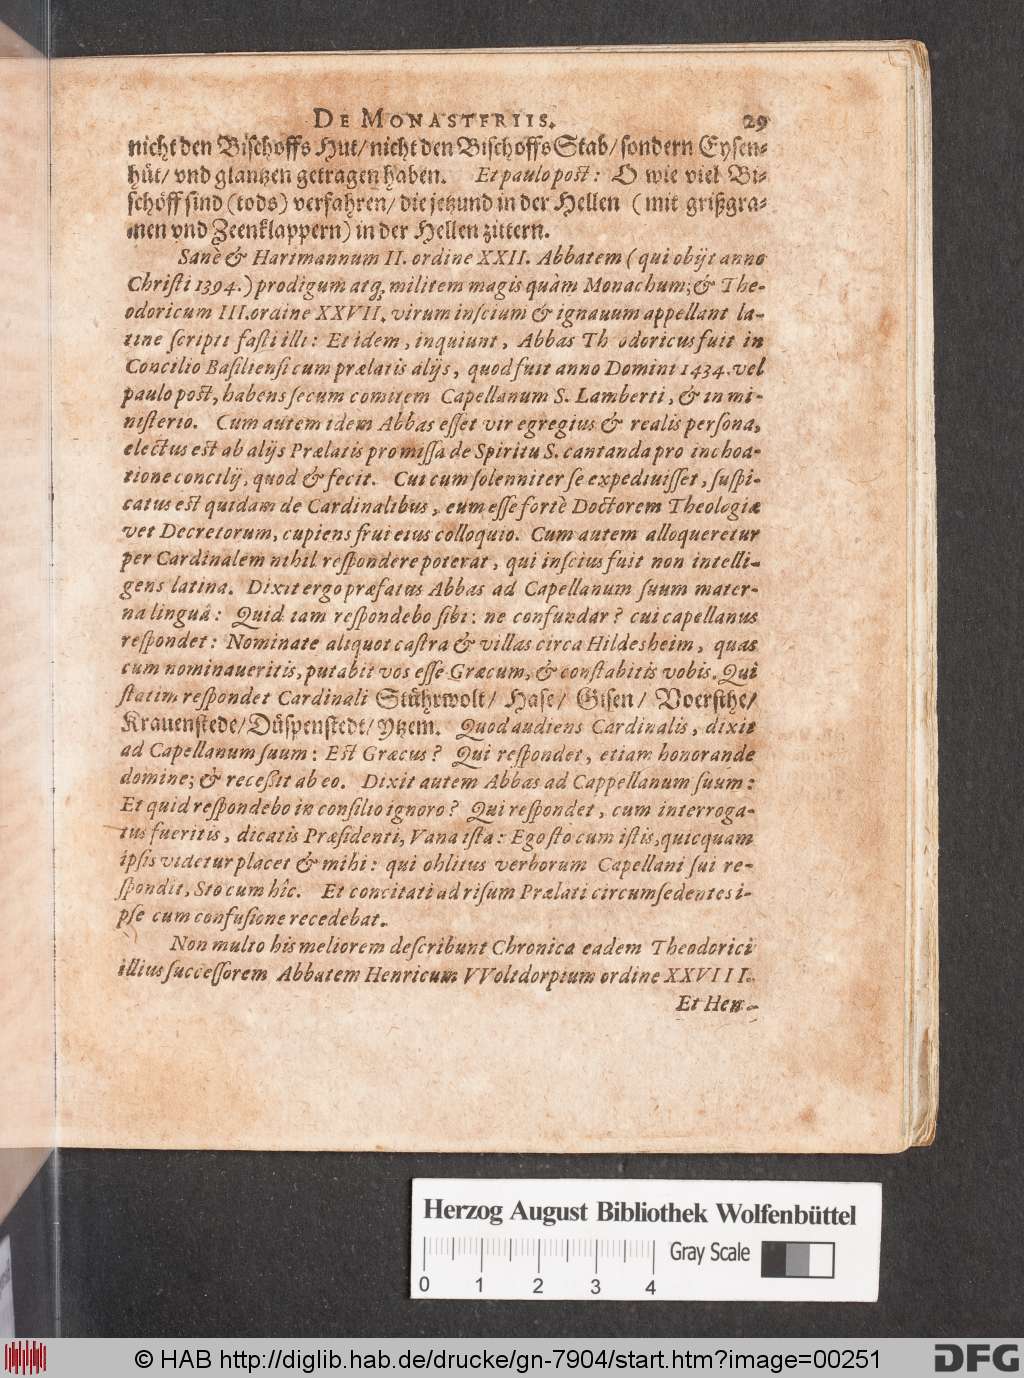 DE MONASTERIIS. 29
nicht den Bischoffs Hut/ nicht den Bischoffs Stab/ sondern Eysen-
hüt/ vnd glantzen getragen haben. Et paulo post: O wie viel Bi-
schöff sind (tods) verfahren/ die jetzund in der Hellen (mit grißgra-
men vnd Zeenklappern) in der Hellen zittern.
Sanè & Hartmannum II. ordine XXII. Abbatem (qui obijt anno
Christi 1394.) prodigum atq; militem magis quàm Monachum; & The-
odoricum III. ordine XXVII. virum inscium & ignauum appellant la-
tine scripti fasti illi: Et idem, inquiunt, Abbas Theodoricus fuit in
Concilio Basiliensi cum prælatis alijs, quod fuit anno Domini 1434. vel
paulo post, habens secum comitem Capellanum S. Lamberti, & in mi-
nisterio. Cum autem idem Abbas esset vir egregius & realis persona,
electus est ab alijs Prælatis pro missa de Spiritu S. cantanda pro inchoa-
tione concilij, quod & fecit. Cui cum solenniter se expediuisset, suspi-
catus est quidam de Cardinalibus, eum esse fortè Doctorem Theologiæ
vet Decretorum, cupiens frui eius colloquio. Cum autem alloqueretur
per Cardinalem nihil respondere poterat, qui inscius fuit non intelli-
gens latina. Dixit ergo præfatus Abbas ad Capellanum suum mater-
na linguâ: Quid iam respondebo sibi: ne confundar? cui capellanus
respondet: Nominate aliquot castra & villas circa Hildesheim, quas
cum nominaueritis, putabit vos esse Græcum, & constabitis vobis. Qui
statim respondet Cardinali Stührwolt/ Hase/ Gisen/ Voersthe/
Krauenstede/ Düspenstedt/ Ytzem. Quod audiens Cardinalis, dixit
ad Capellanum suum: Est Græcus? Qui respondet, etiam honorande
domine; & recessit ab eo. Dixit autem Abbas ad Cappellanum suum:
Et quid respondebo in consilio ignoro? Qui respondet, cum interroga-
tus fueritis, dicatis Præsidenti, Vana ista: Ego sto cum istis, quicquam
ipsis videtur placet & mihi: qui oblitus verborum Capellani sui re-
spondit, Sto cum hîc. Et concitati ad risum Prælati circumsedentes i-
pse cum confusione recedebat.
Non multo his meliorem describunt Chronica eadem Theodorici
illius successorem Abbatem Henricum VVoltdorpium ordine XXVIII.
Et Hen-
Herzog August Bibliothek Wolfenbüttel
Gray Scale
0 1 2 3 4
© HAB http://diglib.hab.de/drucke/gn-7904/start.htm?image=00251
DFG